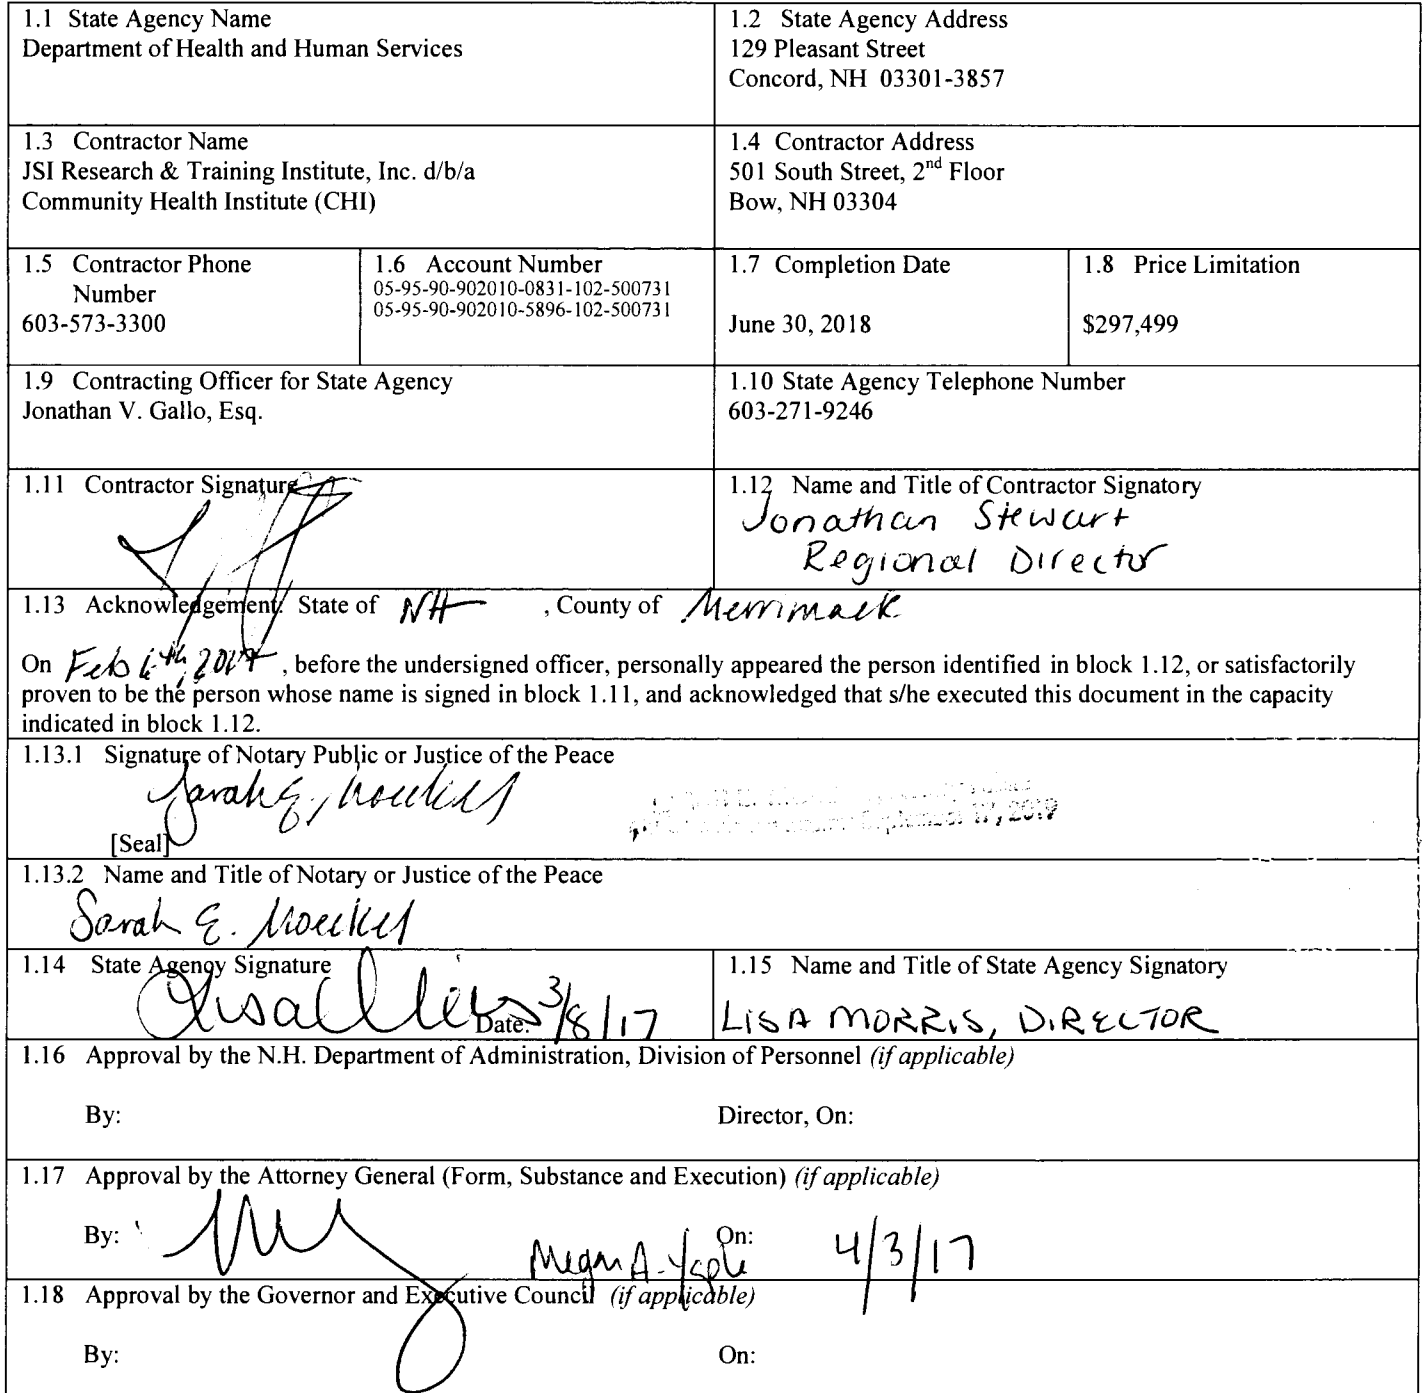 1.1 State Agency Name
Department of Health and Human Services
1.2 State Agency Address
129 Pleasant Street
Concord, NH 03301-3857
1.3 Contractor Name
JSI Research & Training Institute, Inc. d/b/a
Community Health Institute (CHI)
1.4 Contractor Address
501 South Street, 2nd Floor
Bow, NH 03304
1.5 Contractor Phone
Number
603-573-3300
1.6 Account Number
05-95-90-902010-0831-102-500731
05-95-90-902010-5896-102-500731
1.7 Completion Date
June 30, 2018
1.8 Price Limitation
$297,499
1.9 Contracting Officer for State Agency
Jonathan V. Gallo, Esq.
1.10 State Agency Telephone Number
603-271-9246
1.11 Contractor Signature
1.12 Name and Title of Contractor Signatory
Jonathan Stewart
Regional Director
1.13 Acknowledgement: State of NH , County of Merrimack
On Feb 2017 , before the undersigned officer, personally appeared the person identified in block 1.12, or satisfactorily
proven to be the person whose name is signed in block 1.11, and acknowledged that s/he executed this document in the capacity
indicated in block 1.12.
1.13.1 Signature of Notary Public or Justice of the Peace
Sarah E. Moeckel
September 17, 2019
[Seal]
1.13.2 Name and Title of Notary or Justice of the Peace
Sarah E. Moeckel
1.14 State Agency Signature
Date: 3/8/17
1.15 Name and Title of State Agency Signatory
LISA MORRIS, DIRECTOR
1.16 Approval by the N.H. Department of Administration, Division of Personnel (if applicable)
By: Director, On:
1.17 Approval by the Attorney General (Form, Substance and Execution) (if applicable)
By: Megan A. Yaple On: 4/3/17
1.18 Approval by the Governor and Executive Council (if applicable)
By: On: